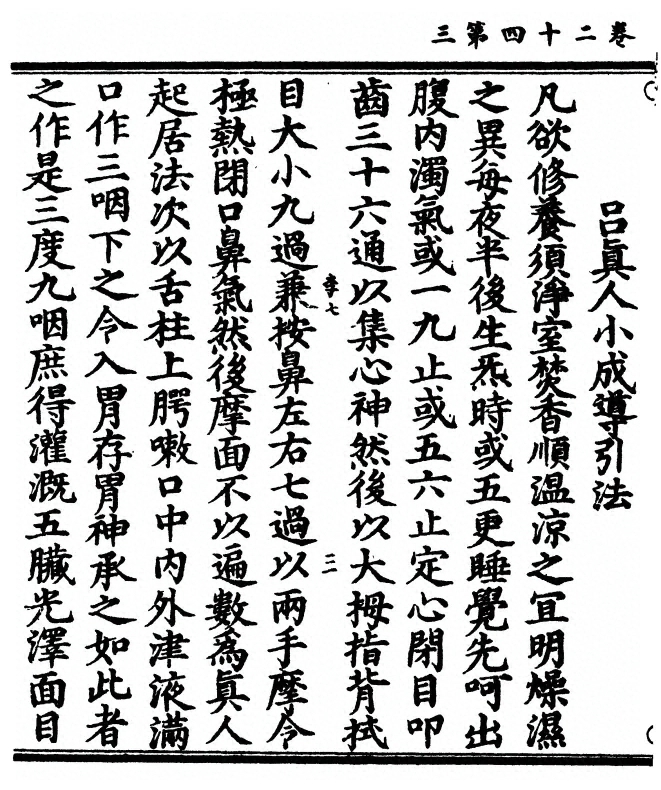 三第四十二卷
呂眞人小成導引法
凡欲修養須淨室焚香順溫涼之宜明燥濕
之異每夜半後生炁時或五更睡覺先呵出
腹內濁氣或一九止或五六止定心閉目叩
齒三十六通以集心神然後以大拇指背拭
李七
三
目大小九過兼按鼻左右七過以兩手摩令
極熱閉口鼻氣然後摩面不以遍數爲眞人
起居法次以舌柱上腭嗽口中內外津液滿
口作三咽下之令入胃存胃神承之如此者
之作是三度九咽庶得灌溉五臟光澤面目